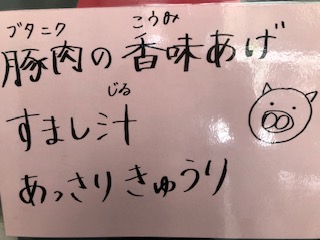 ブタニク こうみ
豚肉の香味あげ
じる
すまし汁
あっさりきゅうり